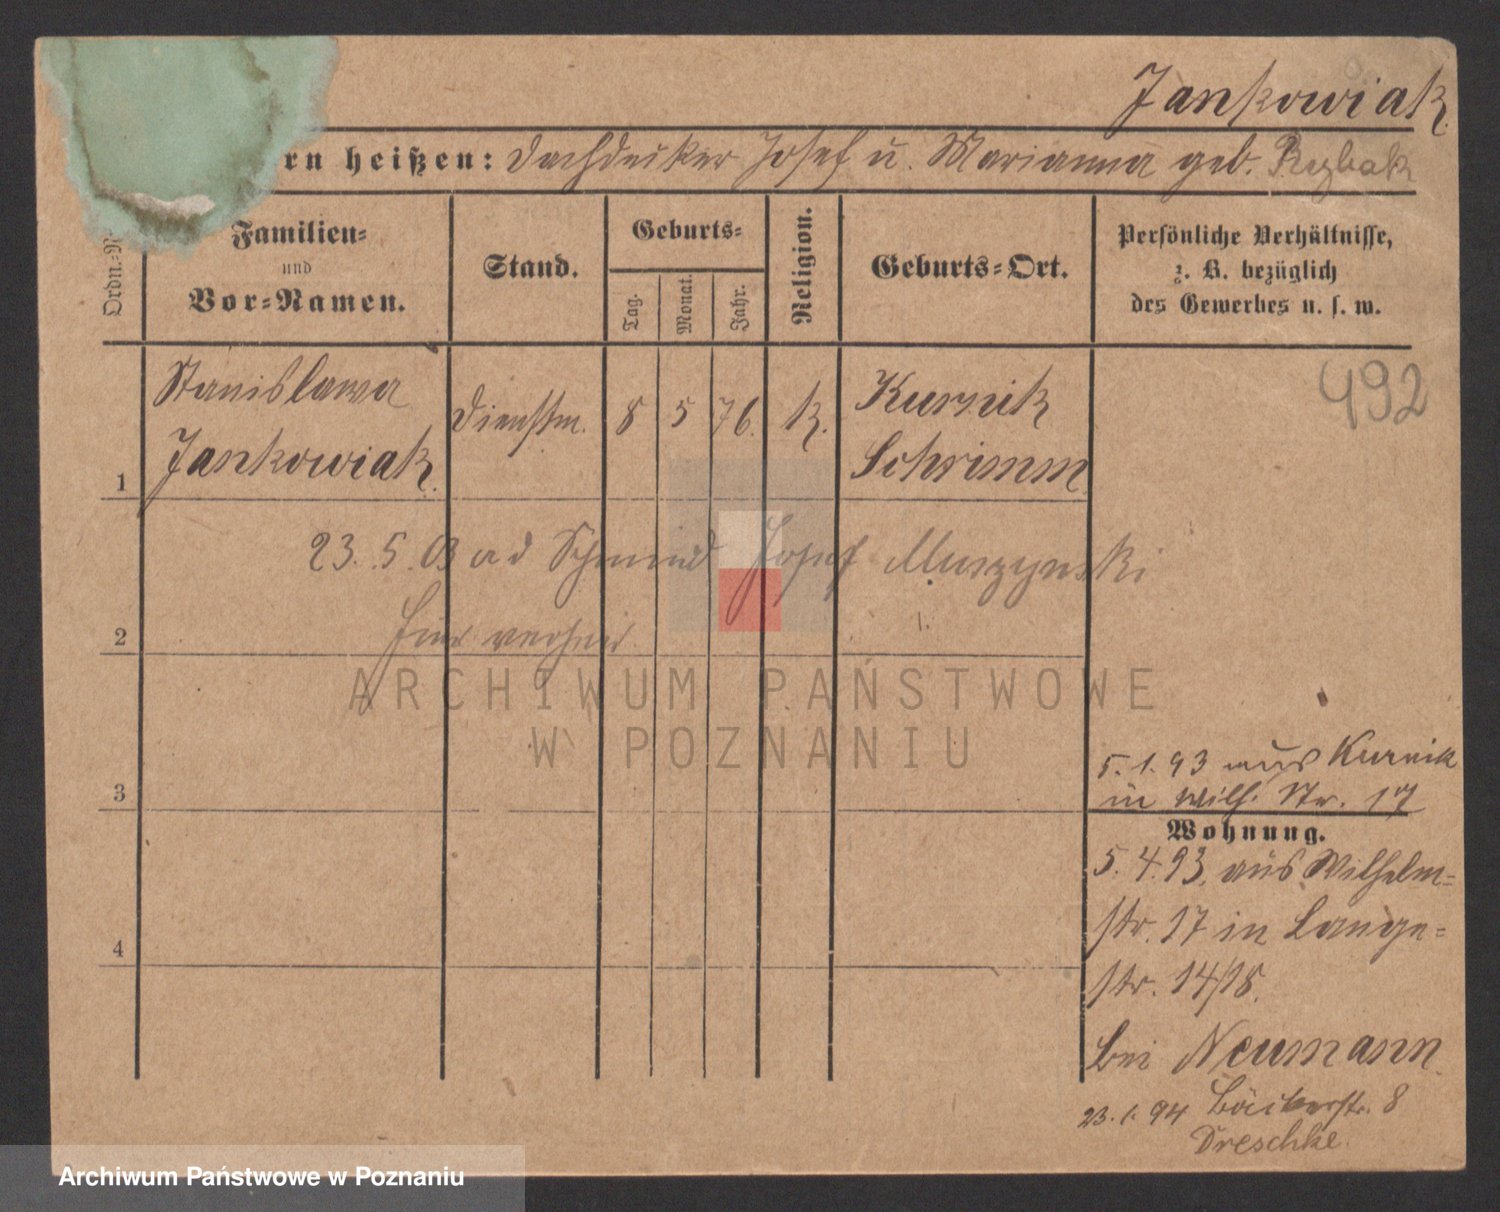 Jankowiak
rn heißen: Dachdecker Josef u. Marianna geb. Rybak
Ordn.-N
Familien-
und
Vor-Namen.
Stand.
Geburts-
Tag.
Monat.
Jahr.
Religion.
Geburts-Ort.
Persönliche Verhältnisse,
z. B. bezüglich
des Gewerbes u. s. w.
492
1
Stanislawa
Jankowiak.
Dienstm.
8
5
76.
K.
Kurnik
Schrimm
23. 5. 03 ad Schmied Josef Muszynski
hier verheir.
2
3
4
5. 1. 93 aus Kurnik
in Wilh. Str. 17
Wohnung.
5. 4. 93. aus Wilhelm-
str. 17 in Lange-
str. 14/18.
bei Neumann.
23. 1. 94 Bäckerstr. 8
Dreschke.
ARCHIWUM PAŃSTWOWE
W POZNANIU
Archiwum Państwowe w Poznaniu